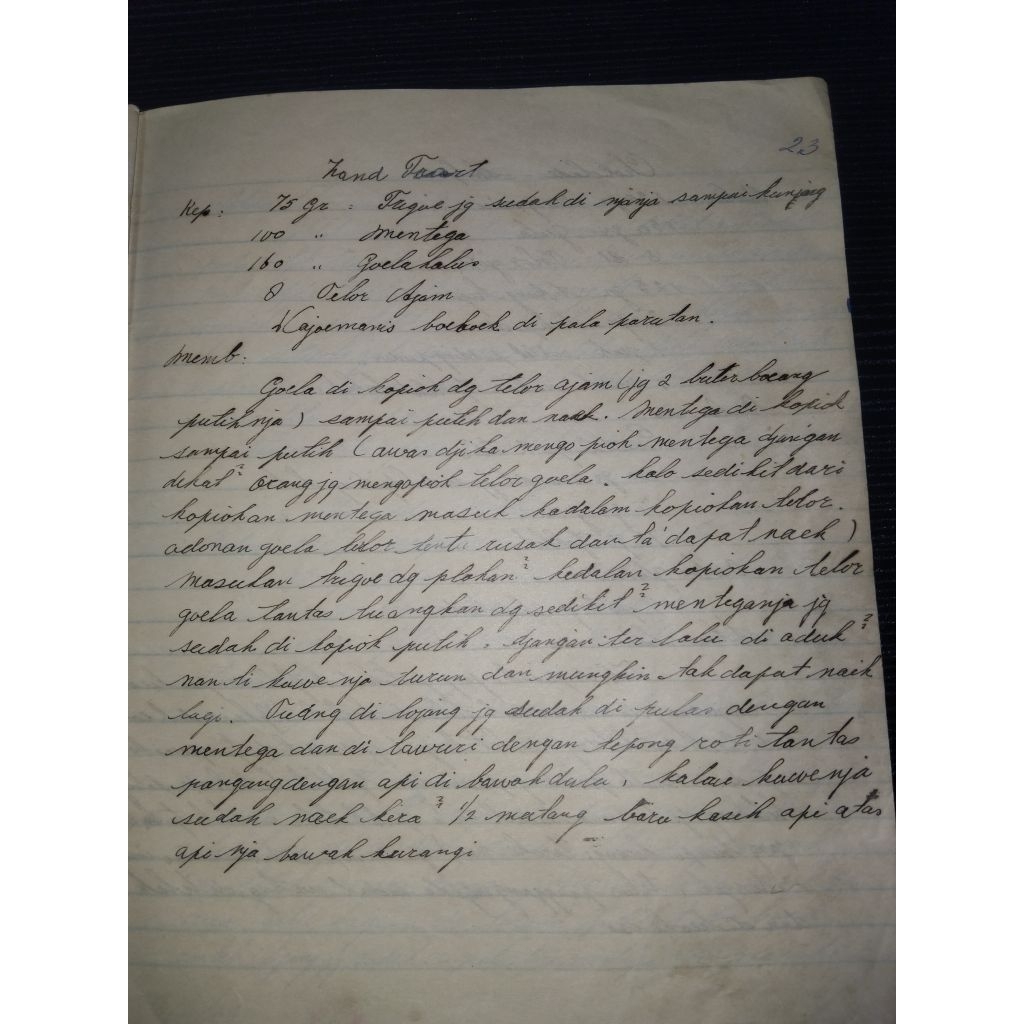 23
Zand Taart
Kep: 75 Gr : Trigoe jg sudah di njanja sampai kunjang
100 " Mentega
160 " Goela halus
8 Telor Ajam
Kajoemanis boeboek di pala parutan.
Memb:
Goela di kopiok dg telor ajam (jg 2 buter boeang
putihnja) sampai putih dan naek. Mentega di kopiok
sampai putih (awas djika mengopiok mentega djangan
dekat² orang jg mengopiok telor goela. kalo sedikit dari
kopiokan mentega masuk kadalam kopiokan telor.
adonan goela telor tentu rusak dan ta' dapat naek)
masukan trigoe dg plahan² kedalam kopiokan telor
goela lantas tuangkan dg sedikit² menteganja jg
sudah di kopiok putih. djangan ter lalu di aduk²
nanti kuwenja turun dan mungkin tak dapat naik
lagi. Tuang di lojang jg sudah di pulas dengan
mentega dan di lawuri dengan tepong roti lantas
pangang dengan api di bawah dulu, kalau kuwenja
sudah naek kira² 1/2 matang baru kasih api atas
api nja bawah kurangi